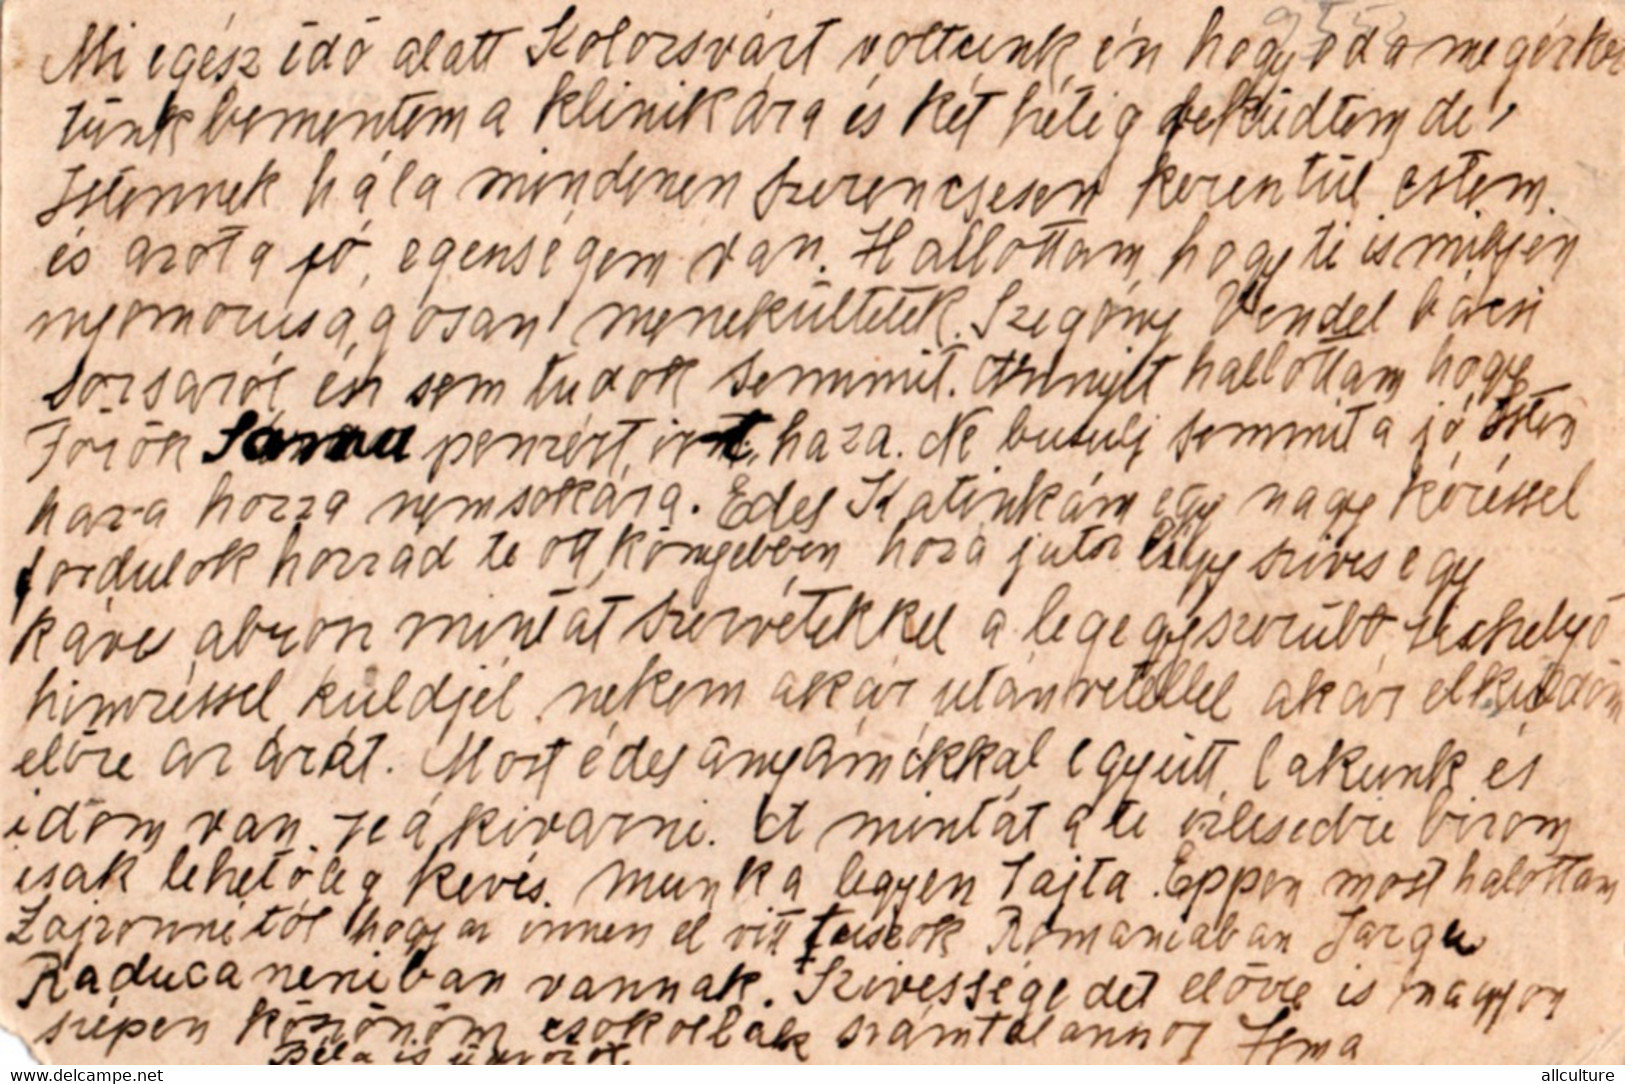 Mi egész idő alatt Kolozsvárt voltunk én hogy oda megérkez
tünk bementem a klinikára és két hétig feküdtem de
Istennek hála mindenen szerencsesen kerentül estem
és azota jó egenségem van. Hallottam hogy ti is milyen
nyomoruságosan menekültetek. Szegény Vendel bácsi
sorsaról én sem tudok semmit. Annyit hallottam hogy
Török pénzért irt haza. Ne busulj semmit a jó Isten
haza hozza nemsokára. Édes Katinkám egy nagy kéréssel
fordulok hozzád te ott könyebben hozá jutsz légy szives egy
kávés abrosz mintát szervétekkel a legegyszerübb
himzéssel küldjél nekem akár utánvétellel akár elküldöm
előre az árát. Most édes anyámékkal együtt lakunk és
időm van reá kivarni. A mintát a te izlésedre bizom
csak lehetőleg kevés munka legyen rajta. Éppen most halottam
hogy az innen el vitt tuszok Romaniaban Targu
Raducaneniban vannak. Szivességedet előre is nagyon
szépen köszönöm csokollak számtalanszor Irma
Béla is üdvözöl.
allculture
delcampe.net